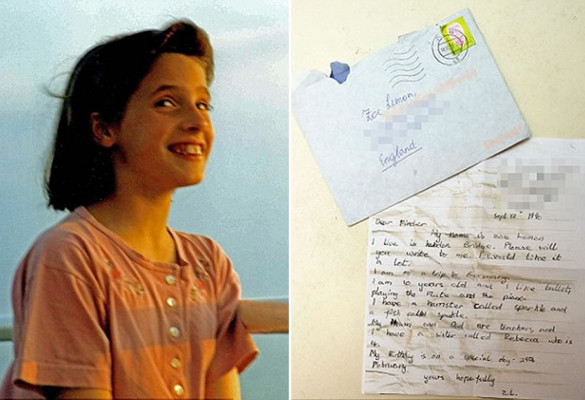 Zoe Lemon,
England
Sept 12th 1990
Dear Finder
My name is Zoe Lemon
I live in Hebden Bridge. Please will
you write to me I would like it
a lot.
I am on a trip to Germany.
I am 10 years old and I like ballet,
playing the flute and the piano.
I have a hamster called Sparkle and
a fish called Speckle.
My Mum and Dad are teachers and
I have a sister called Rebecca who is
My Birthday is on a special day - 29th
February
yours hopefully
Z.L.